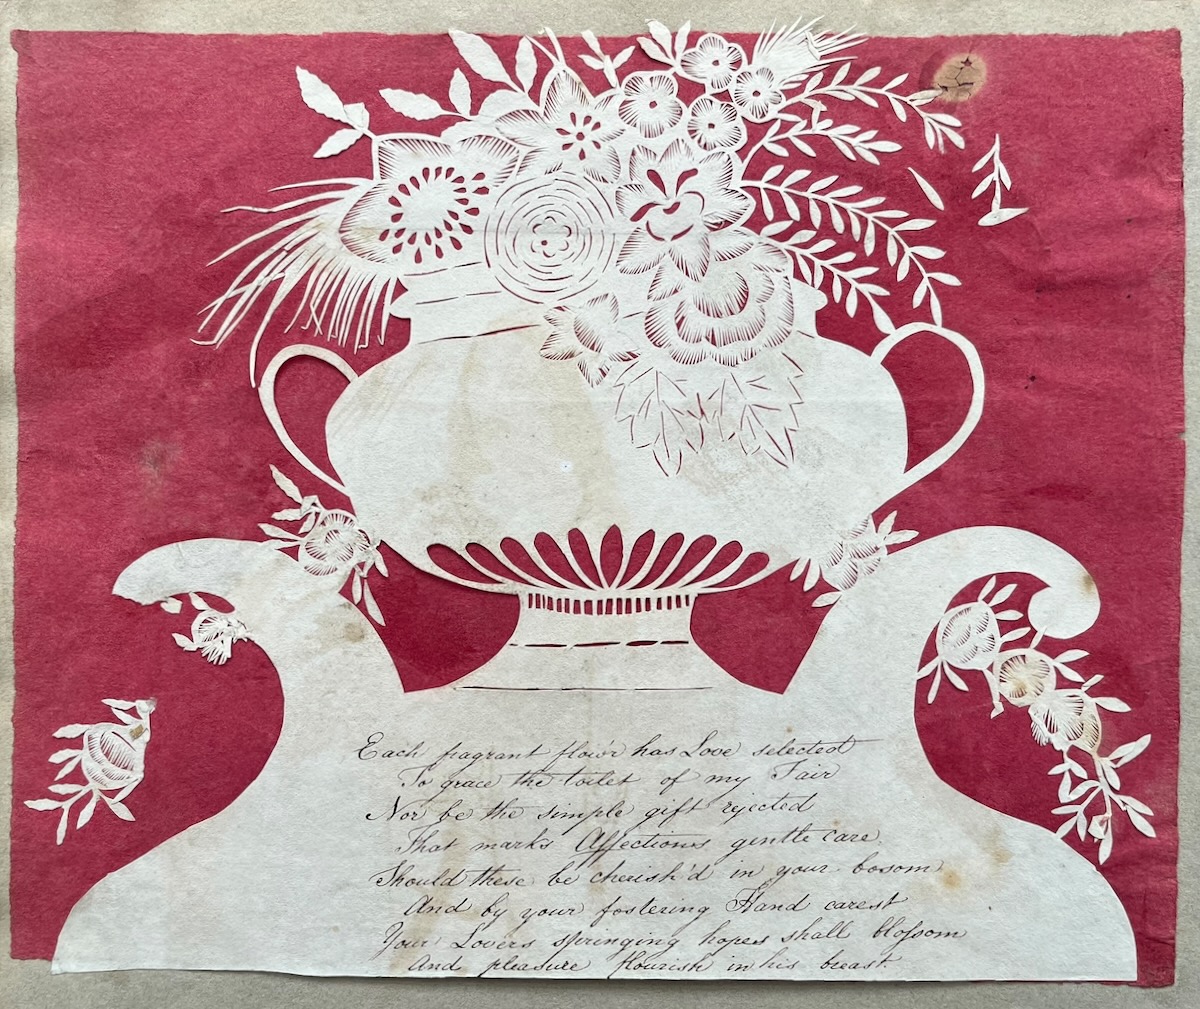 Each fragrant flow'r has Love selected
To grace the toilet of my Fair
Nor be the simple gift rejected
That marks Affections gentle care
Should these be cherish'd in your bosom
And by your fostering Hand carest
Your Lovers springing hopes shall bloſsom
And pleasure flourish in his breast.